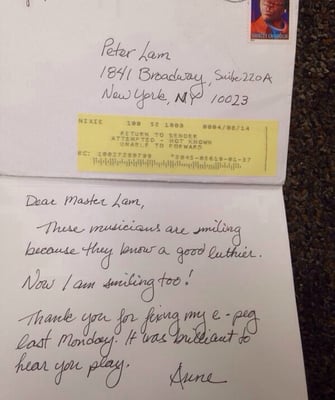 Peter Lam
1841 Broadway, Suite 220A
New York, NY 10023
NIXIE 100 SE 1009 0004/02/14
RETURN TO SENDER
ATTEMPTED - NOT KNOWN
UNABLE TO FORWARD
Dear Master Lam,
These musicians are smiling
because they know a good luthier.
Now I am smiling too!
Thank you for fixing my e-peg
last Monday. It was brilliant to
hear you play.
Anne